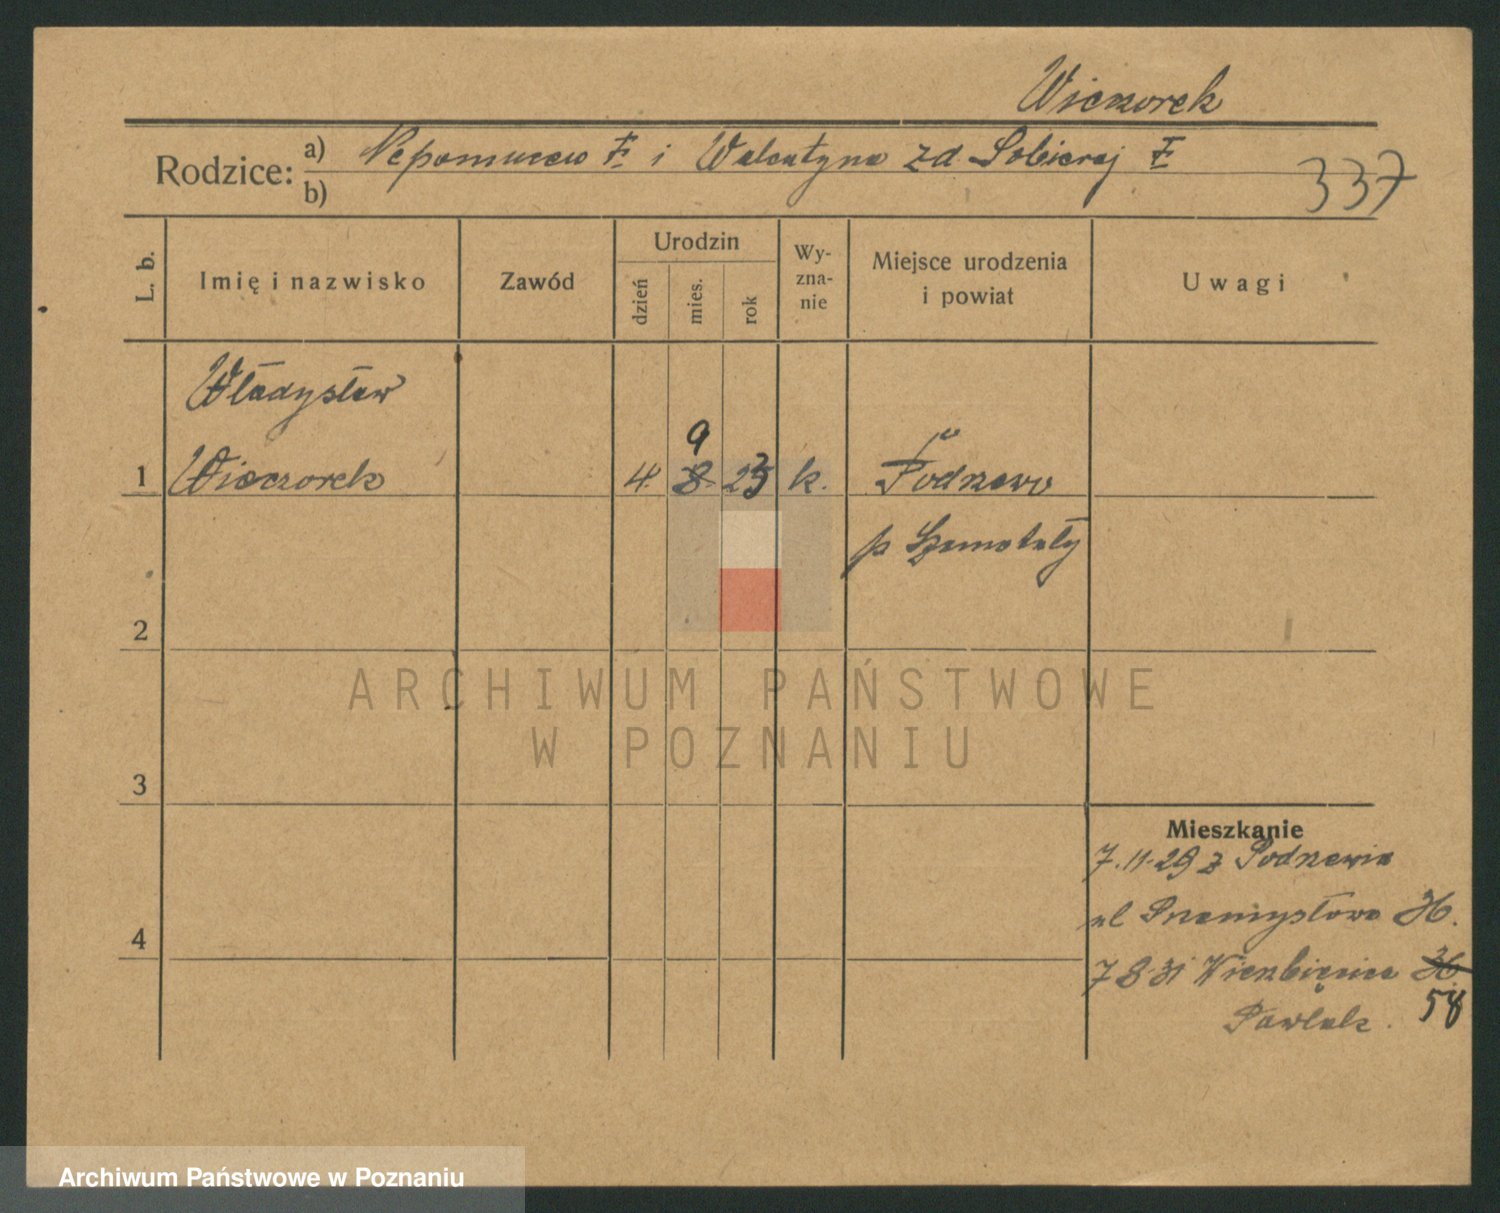 Wieczorek
Rodzice: a) Nepomucew † i Walentyna zd. Sobieraj †
b)
337
L. b.
Imię i nazwisko
Zawód
Urodzin
dzień
mies.
rok
Wy-
zna-
nie
Miejsce urodzenia
i powiat
Uwagi
Władysław
9
1 Wieczorek 4. 8. 25 k. Podrzewo
p Szamotuły
2
ARCHIWUM PAŃSTWOWE
W POZNANIU
3
Mieszkanie
7.11.29 z Podrzewia
ul Przemysłowa 36.
4
7 8 31 Wierzbięcice 36
Pawlak. 58
Archiwum Państwowe w Poznaniu